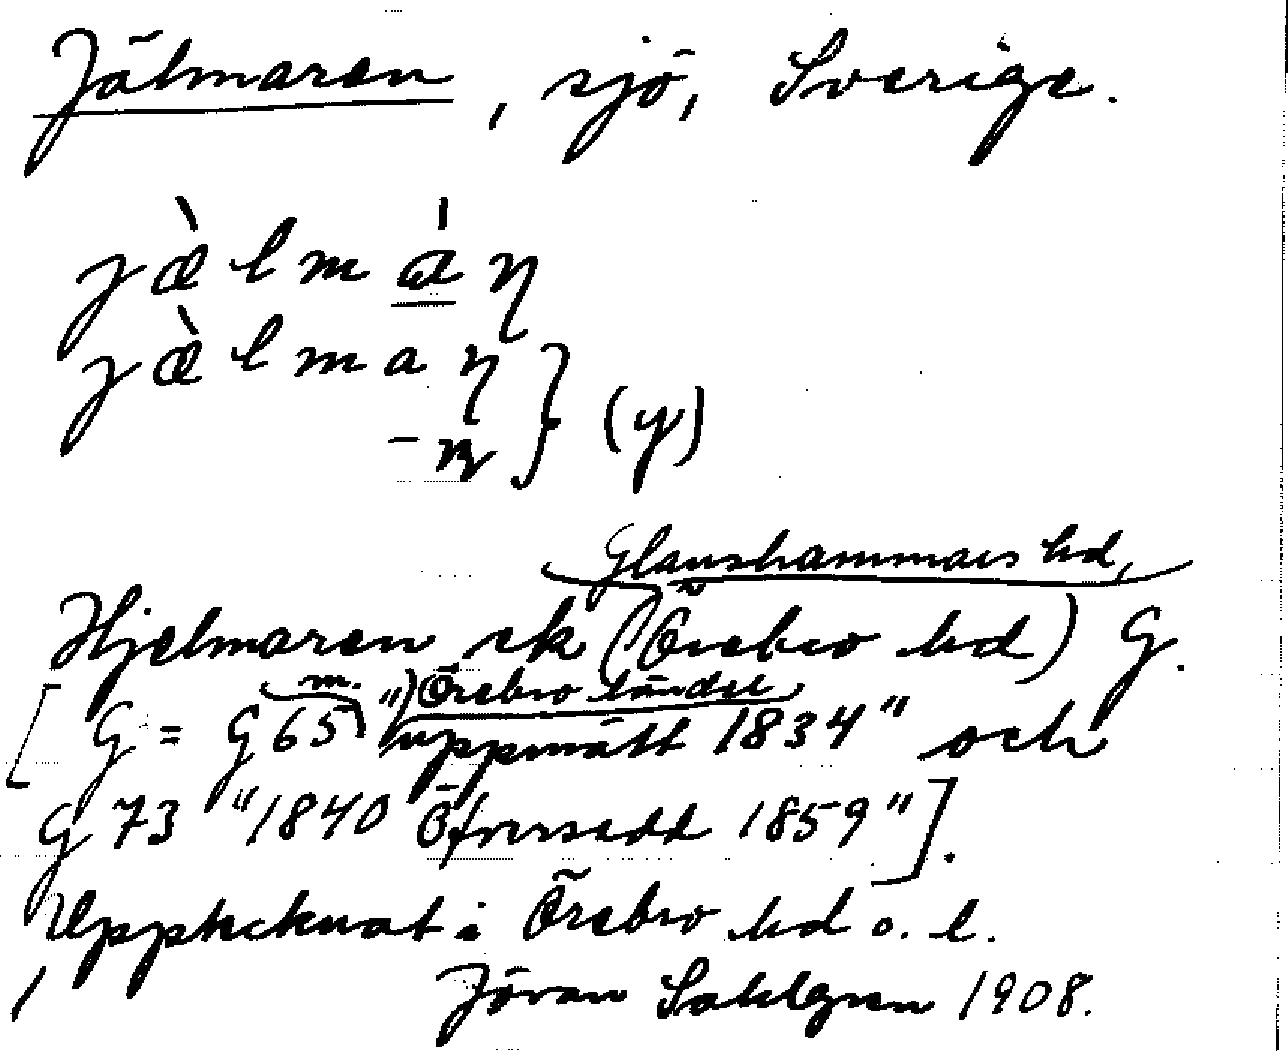 Jälmaren, sjö, Sverige.
jæ̀lmán
jæ̀lman
-n } (y)
Glanshammars hd,
Hjelmaren sk (Örebro hd) G.
m. Örebro länder
[G = G 65 "uppmätt 1834" och
G 73 "1840 Öfversedd 1859"].
Upptecknat i Örebro hd o. l.
Jöran Sahlgren 1908.